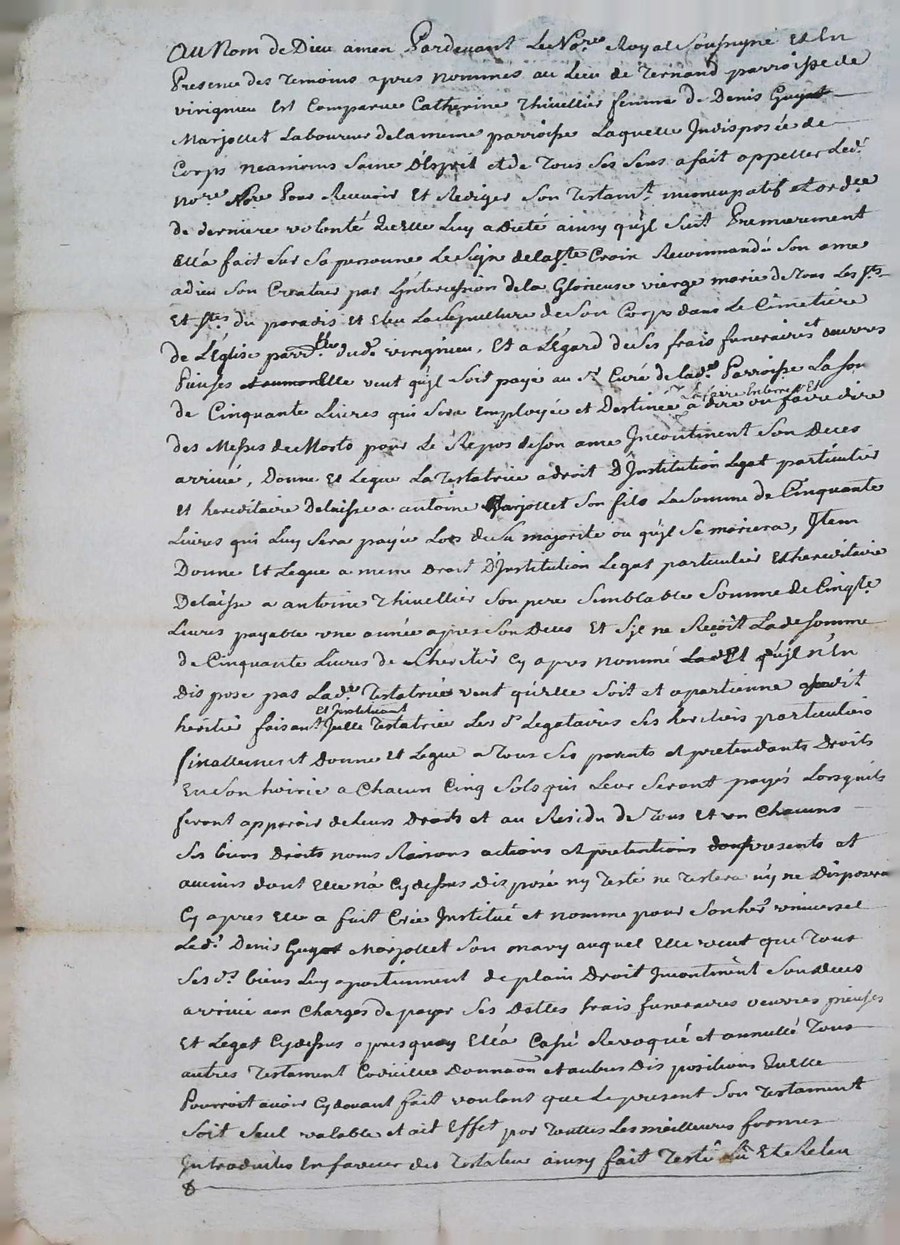 Au Nom de Dieu amen Pardevant Le No.re Royal Soussigné Et En
Presence des Temoins apres nommés au Lieu de Ternand parroisse de
virignieu Est Comparue Catherine Thivellier femme de Denis Guyot
Marjollet Laboureur de la meme parroisse Laquelle Indisposée de
Corps neamoins Saine d'Esprit et de Tous Ses Sens a fait appeller Led.
no.re Pour Recevoir Et Rediger Son Testam.t nuncupatif et ord.re
de derniere volonté Quelle Luy a Dicté ainsy qu'jl Suit Premierement
Ell'a fait Sur Sa personne Le Signe de la S.te Croix Recommandé Son ame
a dieu Son Createur par L'jntercession de la Glorieuse vierge marie de Tous Les S.ts
Et S.tes du paradis Et Eleu La Sepulture de Son Corps dans Le Cimetiere
de L'Eglise parr.lle dud. virignieu, Et a L'Egard de Ses frais funeraires et oeuvres
Pieuses Elle veut qu'jl Soit payé au S.r Curé de lad.e Parroisse La Som
de Cinquante Livres qui Sera Employée et Destinée a La faire Enterrer Et
a dire ou faire dire
des Messes de Morts pour Le Repos de Son ame Jncontinent Son Deces
arrivé, Donne Et Legue La Testatrice a droit D'Jnstitution Legat particulier
Et hereditaire Delaisse a antoine Marjollet Son fils La Somme de Cinquante
Livres qui Luy Sera payée Lors de Sa majorité ou qu'jl Se mariera, Jtem
Donne Et Legue a meme Droit D'Jnstitution Legat particulier Et hereditaire
Delaisse a antoine Thivellier Son pere Semblable Somme de Cinq.te
Livres payable une année apres Son Deces Et S'jl ne Reçoit La de Somme
de Cinquante Livres de L'heritier Cy apres nommé Et qu'jl n'En
Dispose pas Lad.e Testatrice veut qu'elle Soit et apartienne
heritier faisant Et Jnstituant Jcelle Testatrice Les d. Legataires Ses heritiers particuliers
finallement Donne Et Legue a Tous Ses parents et pretendants Droits
En Son hoirie a Chacun Cinq Sols qui Leur Seront payés Lorsqu'ils
feront apparoir de Leurs Droits et au Residu de Tous Et un Chacuns
Ses biens Droits noms Raisons actions et pretentions presents et
avenirs dont Elle n'a Cy dessus Disposé ny Testé ne Testera n'y ne Disposera
Cy apres Elle a fait Crée Jnstitué et nommé pour Son her. universel
Led. Denis Guyot Marjollet Son mary auquel Elle veut que Tous
Ses d.s biens Luy apartiennent de plain Droit Jncontinent Son Deces
arrivé aux Charges de payer Ses Dettes frais funeraires oeuvres pieuses
Et Legat Cy dessus apres quoy Ell'a Cassé Revoqué et annullé Tous
autres Testament Codicille Donnaõn et autres Dispositions Quelle
Pourroit avoir Cy devant fait voulant que Le present Son Testament
Soit Seul valable et ait Effet par Toutes Les meilleures formes
Jntroduites En faveur des Testateur ainsy fait Testé Lû Et Releu